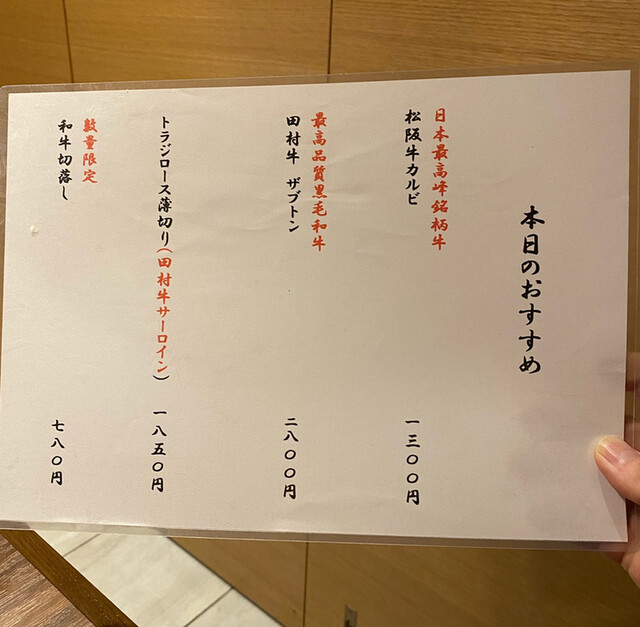 本日のおすすめ
日本最高峰銘柄牛
松阪牛カルビ
一三〇〇円
最高品質黒毛和牛
田村牛 ザブトン
二八〇〇円
トラジロース薄切り(田村牛サーロイン)
一八五〇円
数量限定
和牛切落し
七八〇円